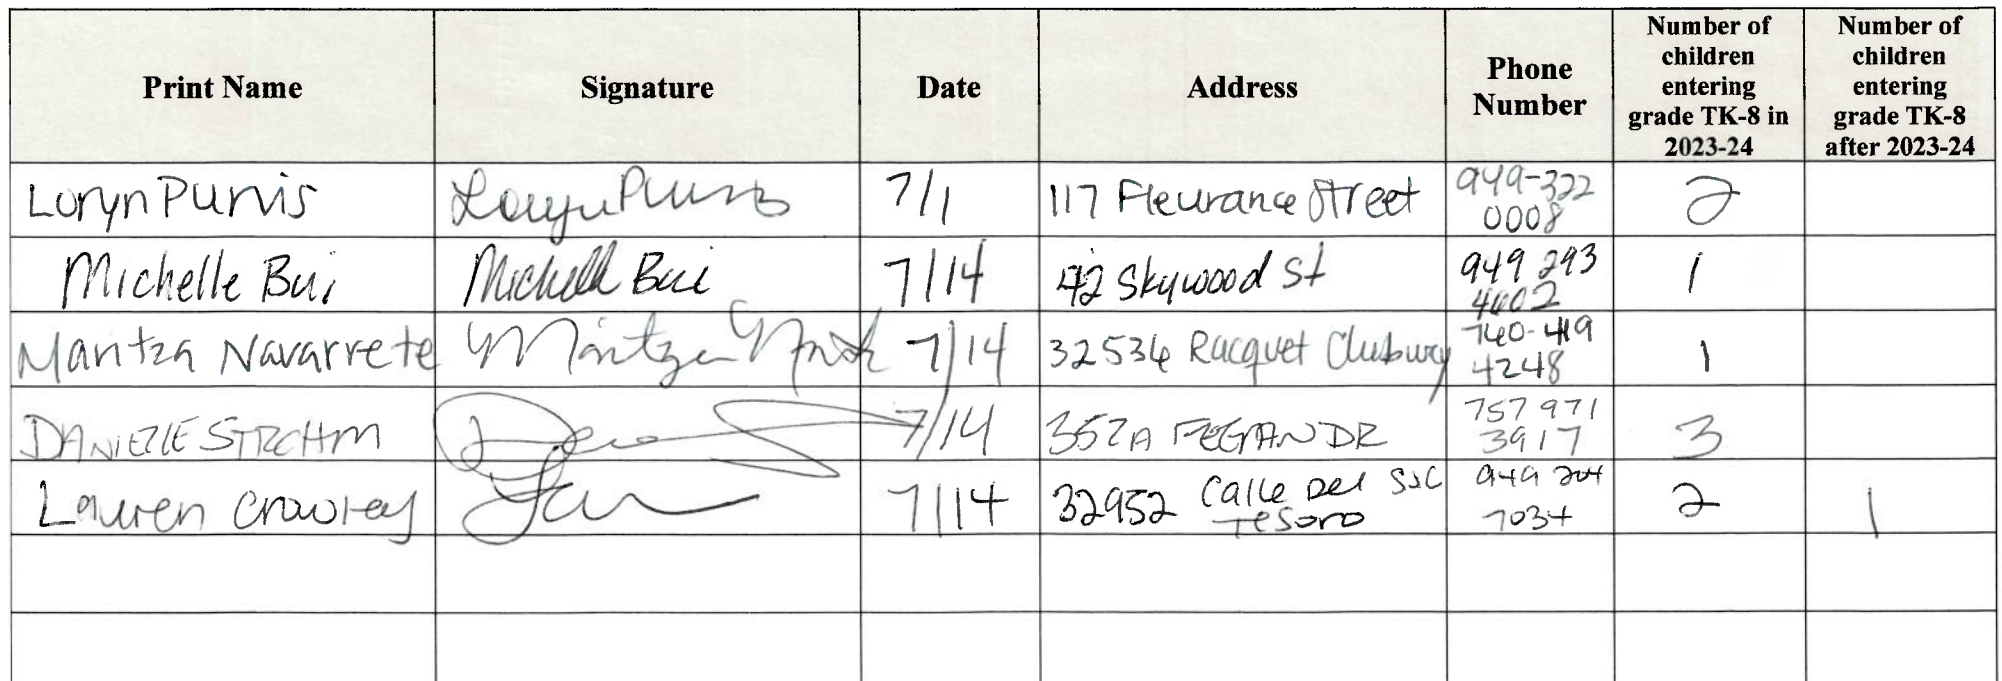 Print Name Signature Date Address Phone Number Number of children entering grade TK-8 in 2023-24 Number of children entering grade TK-8 after 2023-24
Loryn Purvis Loryn Purvis 7/1 117 Fleurance Street 949-322 0008 2
Michelle Bui Michelle Bui 7/14 42 Skywood St 949 293 4602 1
Maritza Navarrete Maritza 7/14 32534 Racquet Clubway 760-419 4248 1
DANIELLE STROHM 7/14 352A FEEGAN DR 757 971 3917 3
Lauren Crowley 7/14 32952 Calle Del Tesoro SJC 949 204 7034 2 1